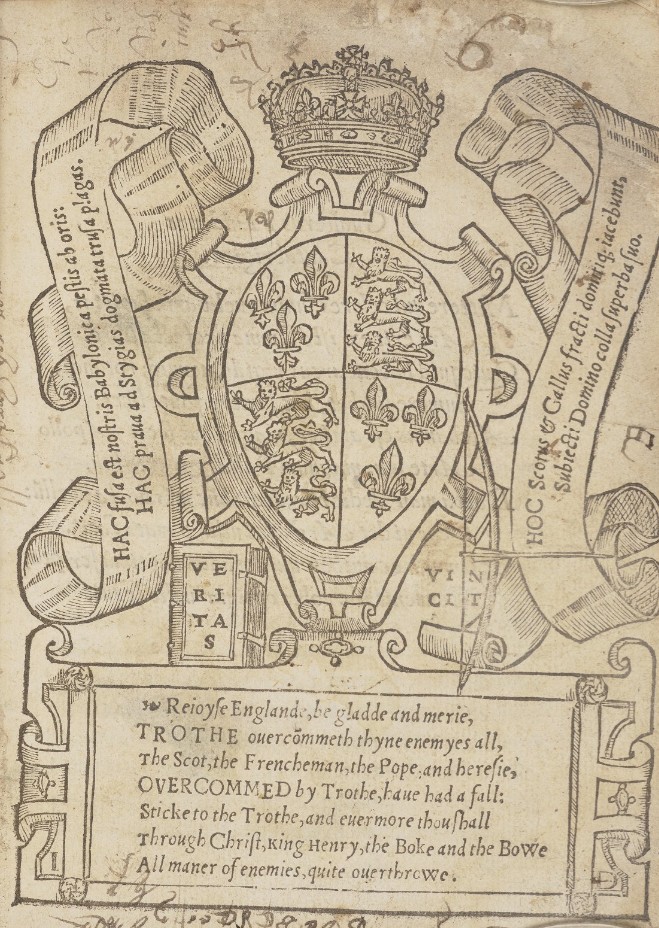 6
HAC fuſa eſt noſtris Babylonica peſtis ab oris:
HAC praua ad Stygias dogmata truſa plagas.
HOC Scotus & Gallus fracti domitiq; iacebunt,
Subiecti Domino colla ſuperba ſuo.
VE
RI
TA
S
VIN
CIT
Reioyſe Englande, be gladde and merie,
TROTHE ouercōmeth thyne enemyes all,
The Scot, the Frencheman, the Pope, and hereſie,
OVERCOMMED by Trothe, haue had a fall:
Sticke to the Trothe, and euermore thou ſhall
Through Chriſt, King Henry, the Boke and the Bowe
All maner of enemies, quite ouerthrowe.